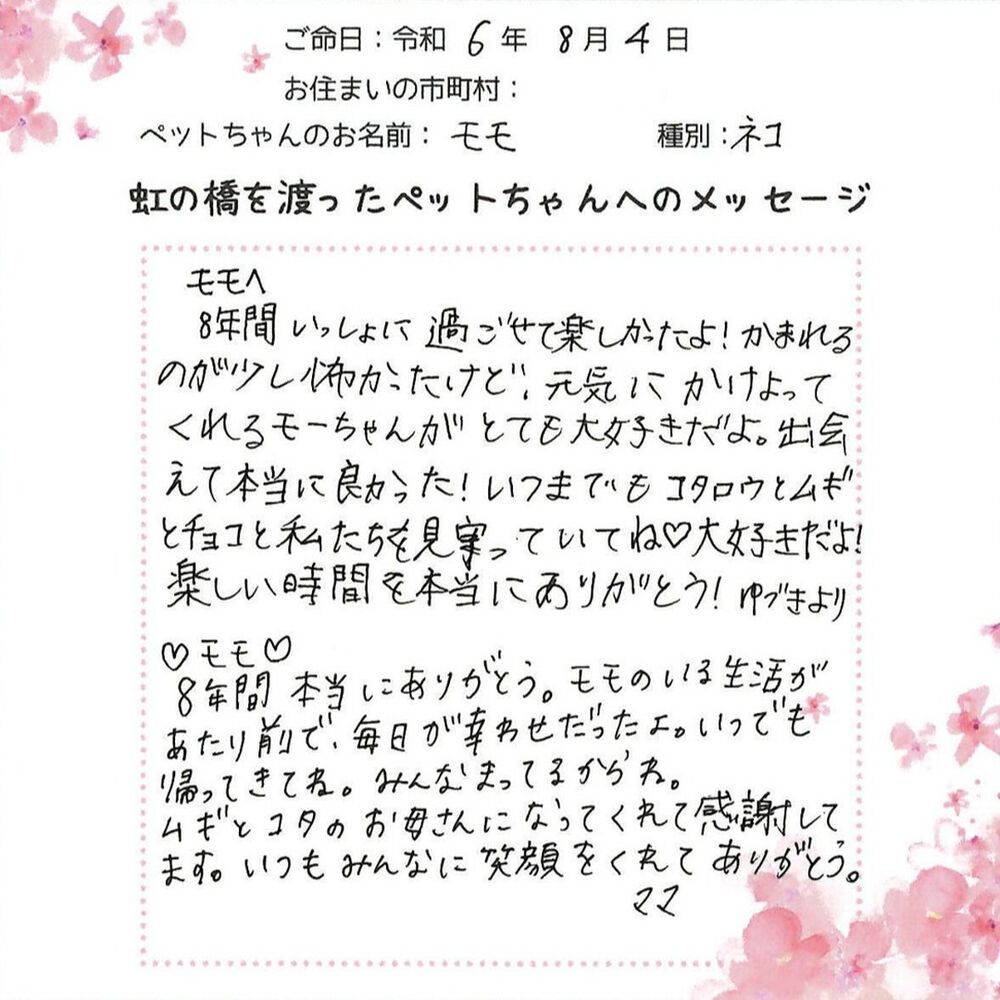 ご命日：令和 6 年 8 月 4 日
お住まいの市町村：
ペットちゃんのお名前： モモ 種別：ネコ
虹の橋を渡ったペットちゃんへのメッセージ
モモへ
8年間 いっしょに 過ごせて楽しかったよ！かまれる
のが少し怖かったけど、元気に かけよって
くれるモーちゃんが とても大好きだよ。出会
えて本当に良かった！いつまでも コタロウとムギ
とチョコと私たちを見守っていてね♡大好きだよ！
楽しい時間を本当にありがとう！ ゆづきより
♡モモ♡
8年間 本当にありがとう。モモのいる生活が
あたり前で、毎日が幸わせだったよ。いつでも
帰ってきてね。みんなまってるからね。
ムギとコタのお母さんになってくれて感謝して
ます。いつもみんなに笑顔をくれてありがとう。
ママ